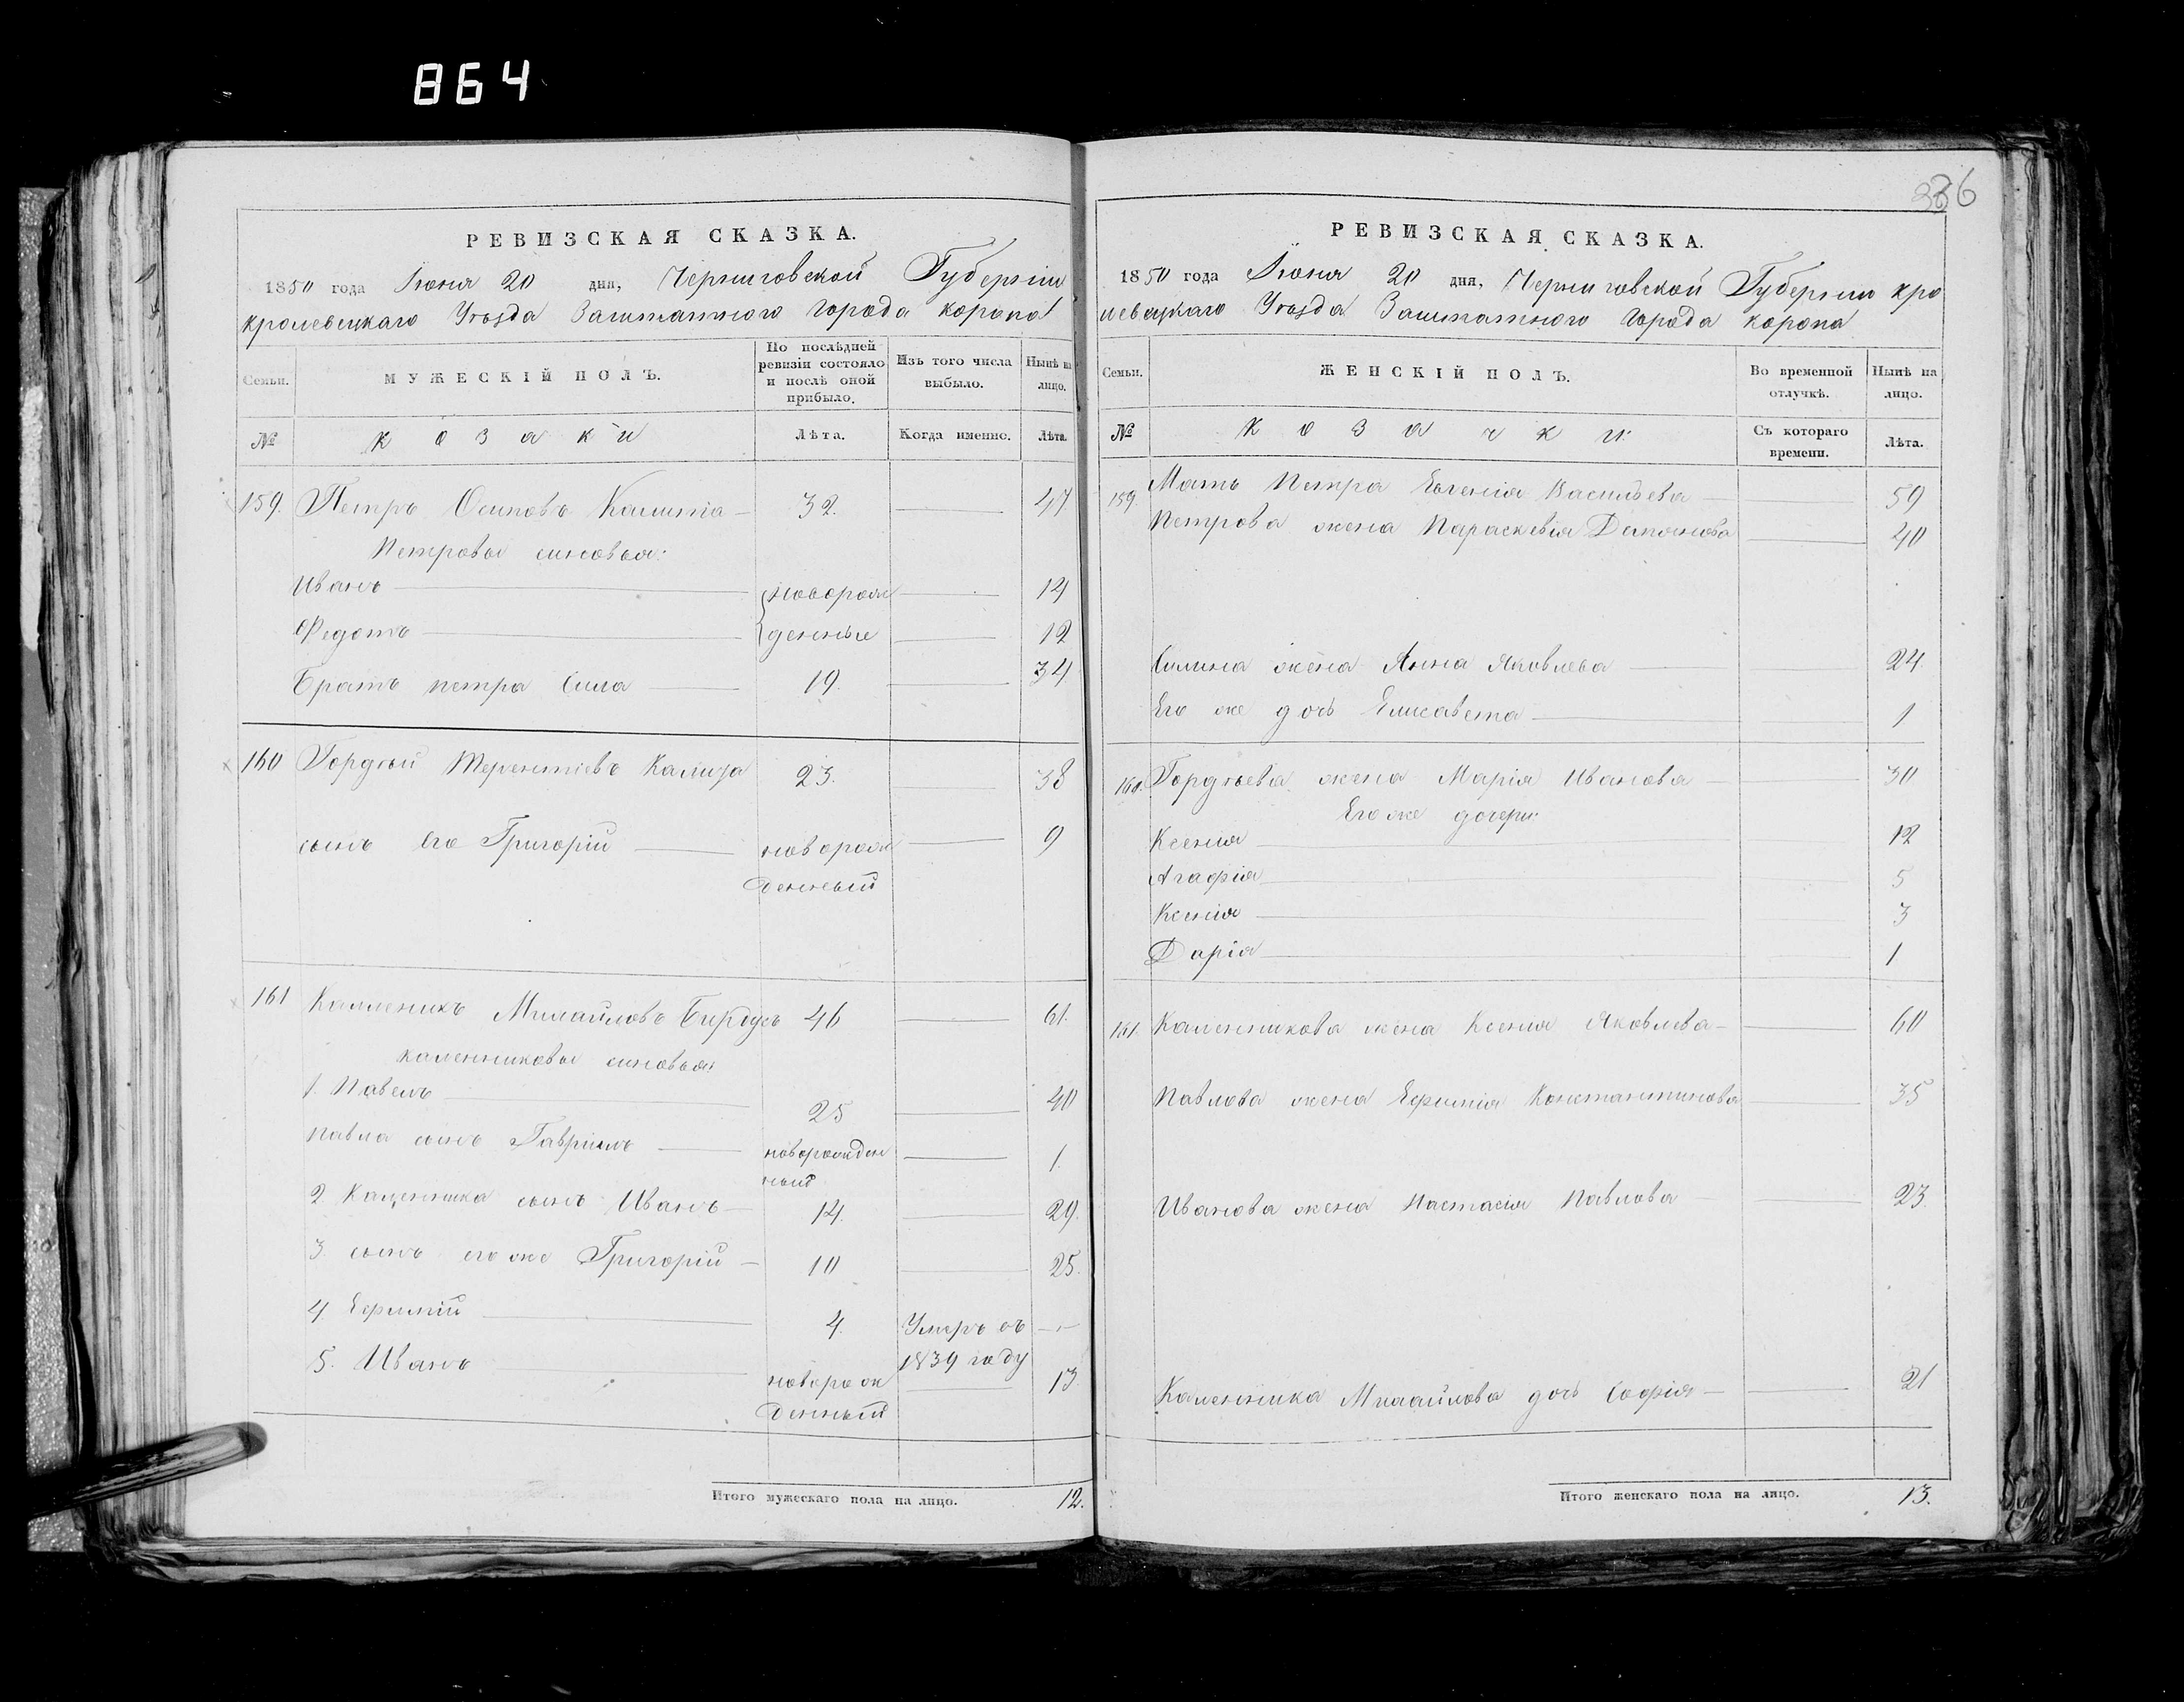 864
336
РЕВИЗСКАЯ СКАЗКА.
1850 года Июня 20 дня, Черниговской Губерніи
кролевецкаго Уѣзда Заштатного города коропа
Семьи.
МУЖЕСКІЙ ПОЛЪ.
По послѣдней ревизіи состояло и послѣ оной прибыло.
Изъ того числа выбыло.
Нынѣ на лицо.
№ козаки Лѣта. Когда именно. Лѣта.
159. Петръ Осиповъ 32. 47
Петровы сыновья:
Иванъ новорож 14
Федотъ денные 12
Братъ петра Сила 19. 34
160 Гордѣй Терентіевъ Калита 23. 38
сынъ его Григорій новорож 9
денный
161 Каленикъ Михайловъ 46 61.
каленниковы сыновья:
1. Павелъ 25 40
павла сынъ Гавріилъ новорожден 1.
ный
2. Каленника сынъ Иванъ 14. 29.
3. сынъ его же Григорій 10 25.
4 Ефимій 4. Умеръ въ
1839 году
5. Иванъ новорож 13
денный
Итого мужескаго пола на лицо. 12.
РЕВИЗСКАЯ СКАЗКА.
1850 года Июня 20 дня, Черниговской Губерніи кро
левецкаго Уѣзда Заштатного города коропа
Семьи.
ЖЕНСКІЙ ПОЛЪ.
Во временной отлучкѣ.
Нынѣ на лицо.
№ козачки: Съ котораго времени. Лѣта.
159. Мать Петра Евгенія Васильева 59
Петрова жена Параскевія 40
Силина жена Анна Яковлева 24.
Его же дочь Елисавета 1
160. Гордѣева жена Марія Иванова 30
Его же дочери:
Ксенія 12
Агафія 5
Ксенія 3
Дарія 1
161. Каленникова жена Ксенія Яковлева 60
Павлова жена Ефимія Константинова 35
Иванова жена Настасія Павлова 23.
Каленника Михайлова дочь Софія 21
Итого женскаго пола на лицо. 13.